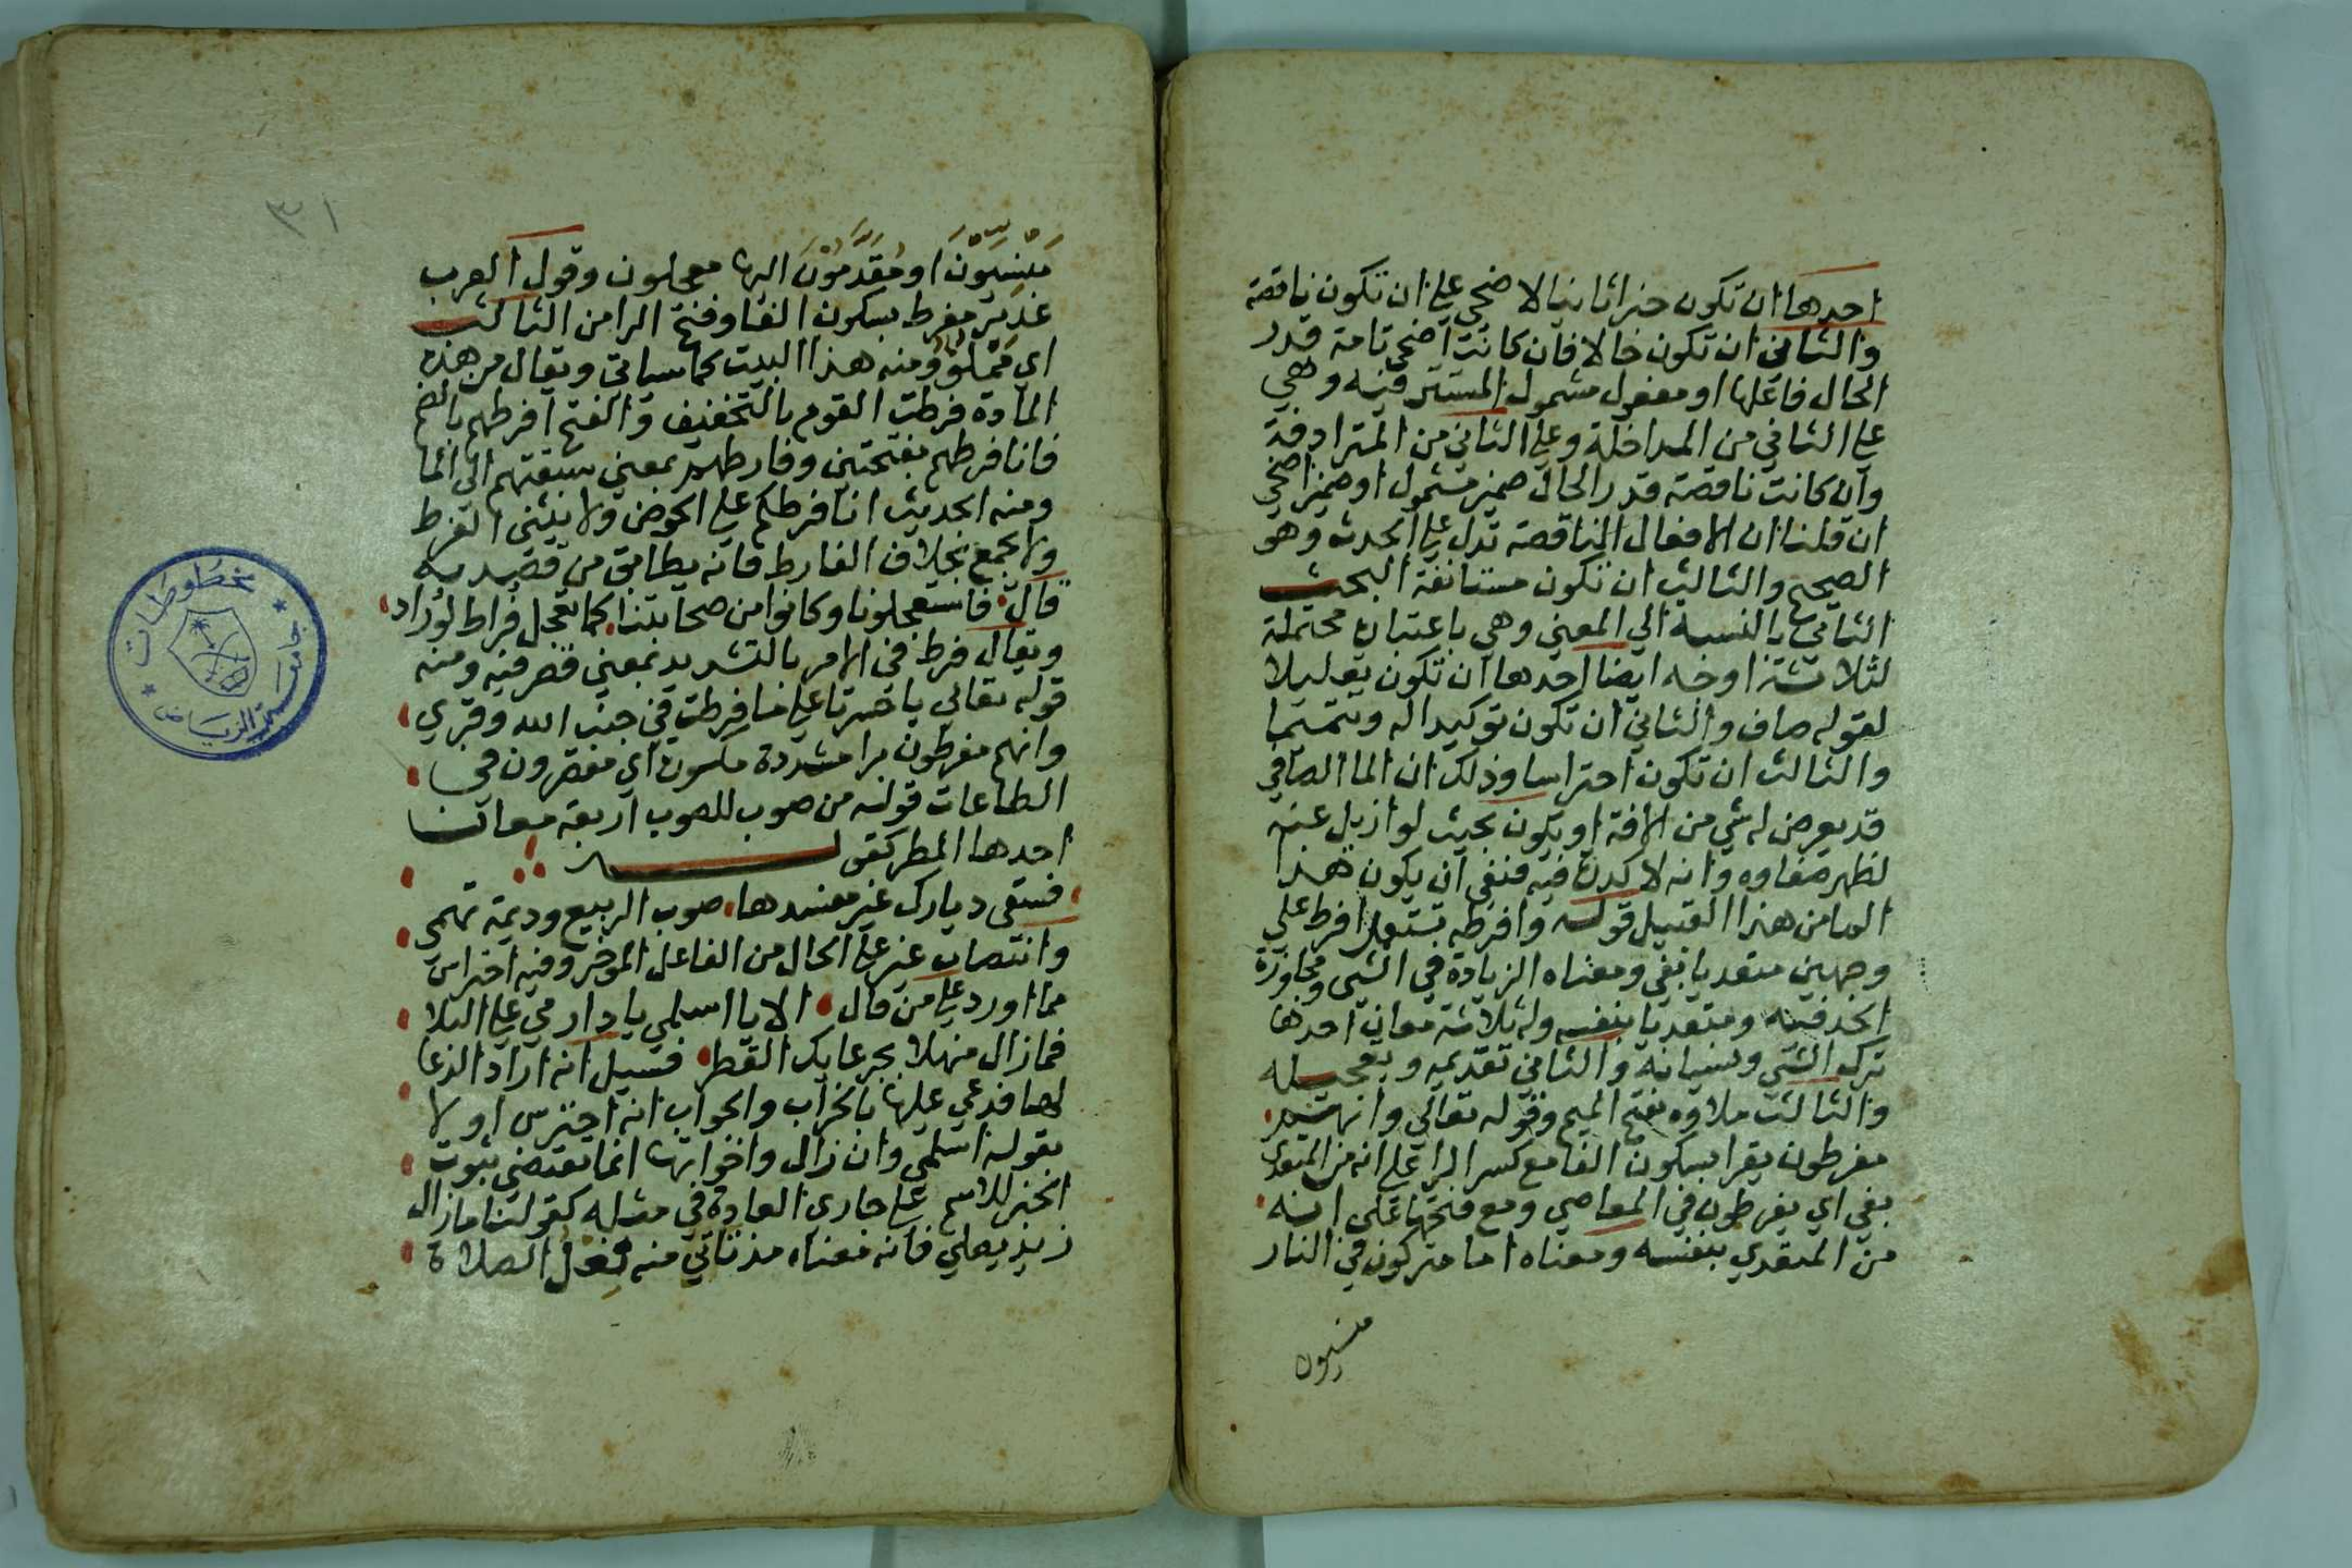 احدها ان تكون خبرا ثانيا لاضحي علي ان تكون ناقصة
والثاني ان تكون حالا فان كانت اضحي تامة قدر
الحال فاعلها او مفعول مشمول المستتر فيه وهي
علي الثاني من المداخلة وعلي الثاني من المترادفة
وان كانت ناقصة قدر الحال ضمير مشمول او ضمير اضحي
ان قلنا ان الافعال الناقصة تدل علي الحدث وهو
الصحيح والثالث ان تكون مستانفة البحث
الثاني بالنسبة الي المعني وهي باعتباره محتملة
لثلاثة اوجه ايضا احدها ان تكون تعليلا
لقوله صاف والثاني ان تكون توكيدا له وتتميما
والثالث ان تكون احتراسا وذلك ان الما الصافي
قد يعرض له شي من الافة او يكون بحيث لو ازيل عنه
لظهر صفاوه وانه لا كدرة فيه فنفي ان يكون هذا
الما من هذا القبيل قوله وافرطه يستعمل افرط علي
وجهين متعديا بفي ومعناه الزيادة في الشي ومجاوزة
الحد فيه ومتعديا بنفسه وله ثلاثة معان احدها
ترك الشي ونسيانه والثاني تقديمه وتعجيله
والثالث ملاوه بفتح الميم وقوله تعالي وانهم
مفرطون يقرا بسكون الفا مع كسر الرا علي انه من المتعدي
بفي اي يفرطون في المعاصي ومع فتحها علي انه
من المتعدي بنفسه ومعناه اما متركون في النار
منسيون
٣١
مَنْسِيّون او مُقَدَّمُونَ اليها معجلون وقول العرب
غدير مفرط بسكون الفا وفتح الرا من الثالث
اي مملوّ ومنه هذا البيت كما سياتي ويقال من هذه
المادة فرطت القوم بالتخفيف والفتح افرطهم بالضم
فانا فرطهم بفتحتين وفارطهم بمعني سبقتهم الي الما
ومنه الحديث انا فرطكم علي الحوض ولا يثني الفرط
ولا يجمع بخلاف الفارط فانه يطابق من قصد به
قال فاستعجلونا وكانوا من صحابتنا كما تعجل فراط لوراد
ويقال فرط في الامر بالتشديد بمعني قصر فيه ومنه
قوله تعالي يا حسرتا علي ما فرطت في جنب الله وقري
وانهم مفرطون برا مشددة مكسورة اي مقصرون في
الطاعات قوله من صوب للصوب اربعة معان
احدها المطر كقوله
فسقي ديارك غير مفسدها صوب الربيع وديمة تهمي
وانتصاب غير علي الحال من الفاعل الموخر وفيه احتراس
مما اورد علي من قال الا يا اسلمي يا دار مي علي البلا
فما زال منهلا بجرعايك القطر فقيل انه اراد الدعا
لها فدعي عليها بالخراب والجواب انه احترس اولا
بقوله اسلمي وان زال واخواتها انما تقتضي ثبوت
الخبر للاسم علي جاري العادة في مثله كقولنا ما زال
زيد يصلي فانه معناه مذ تاتي منه فعل الصلاة
مخطوطات
جامعة الرياض